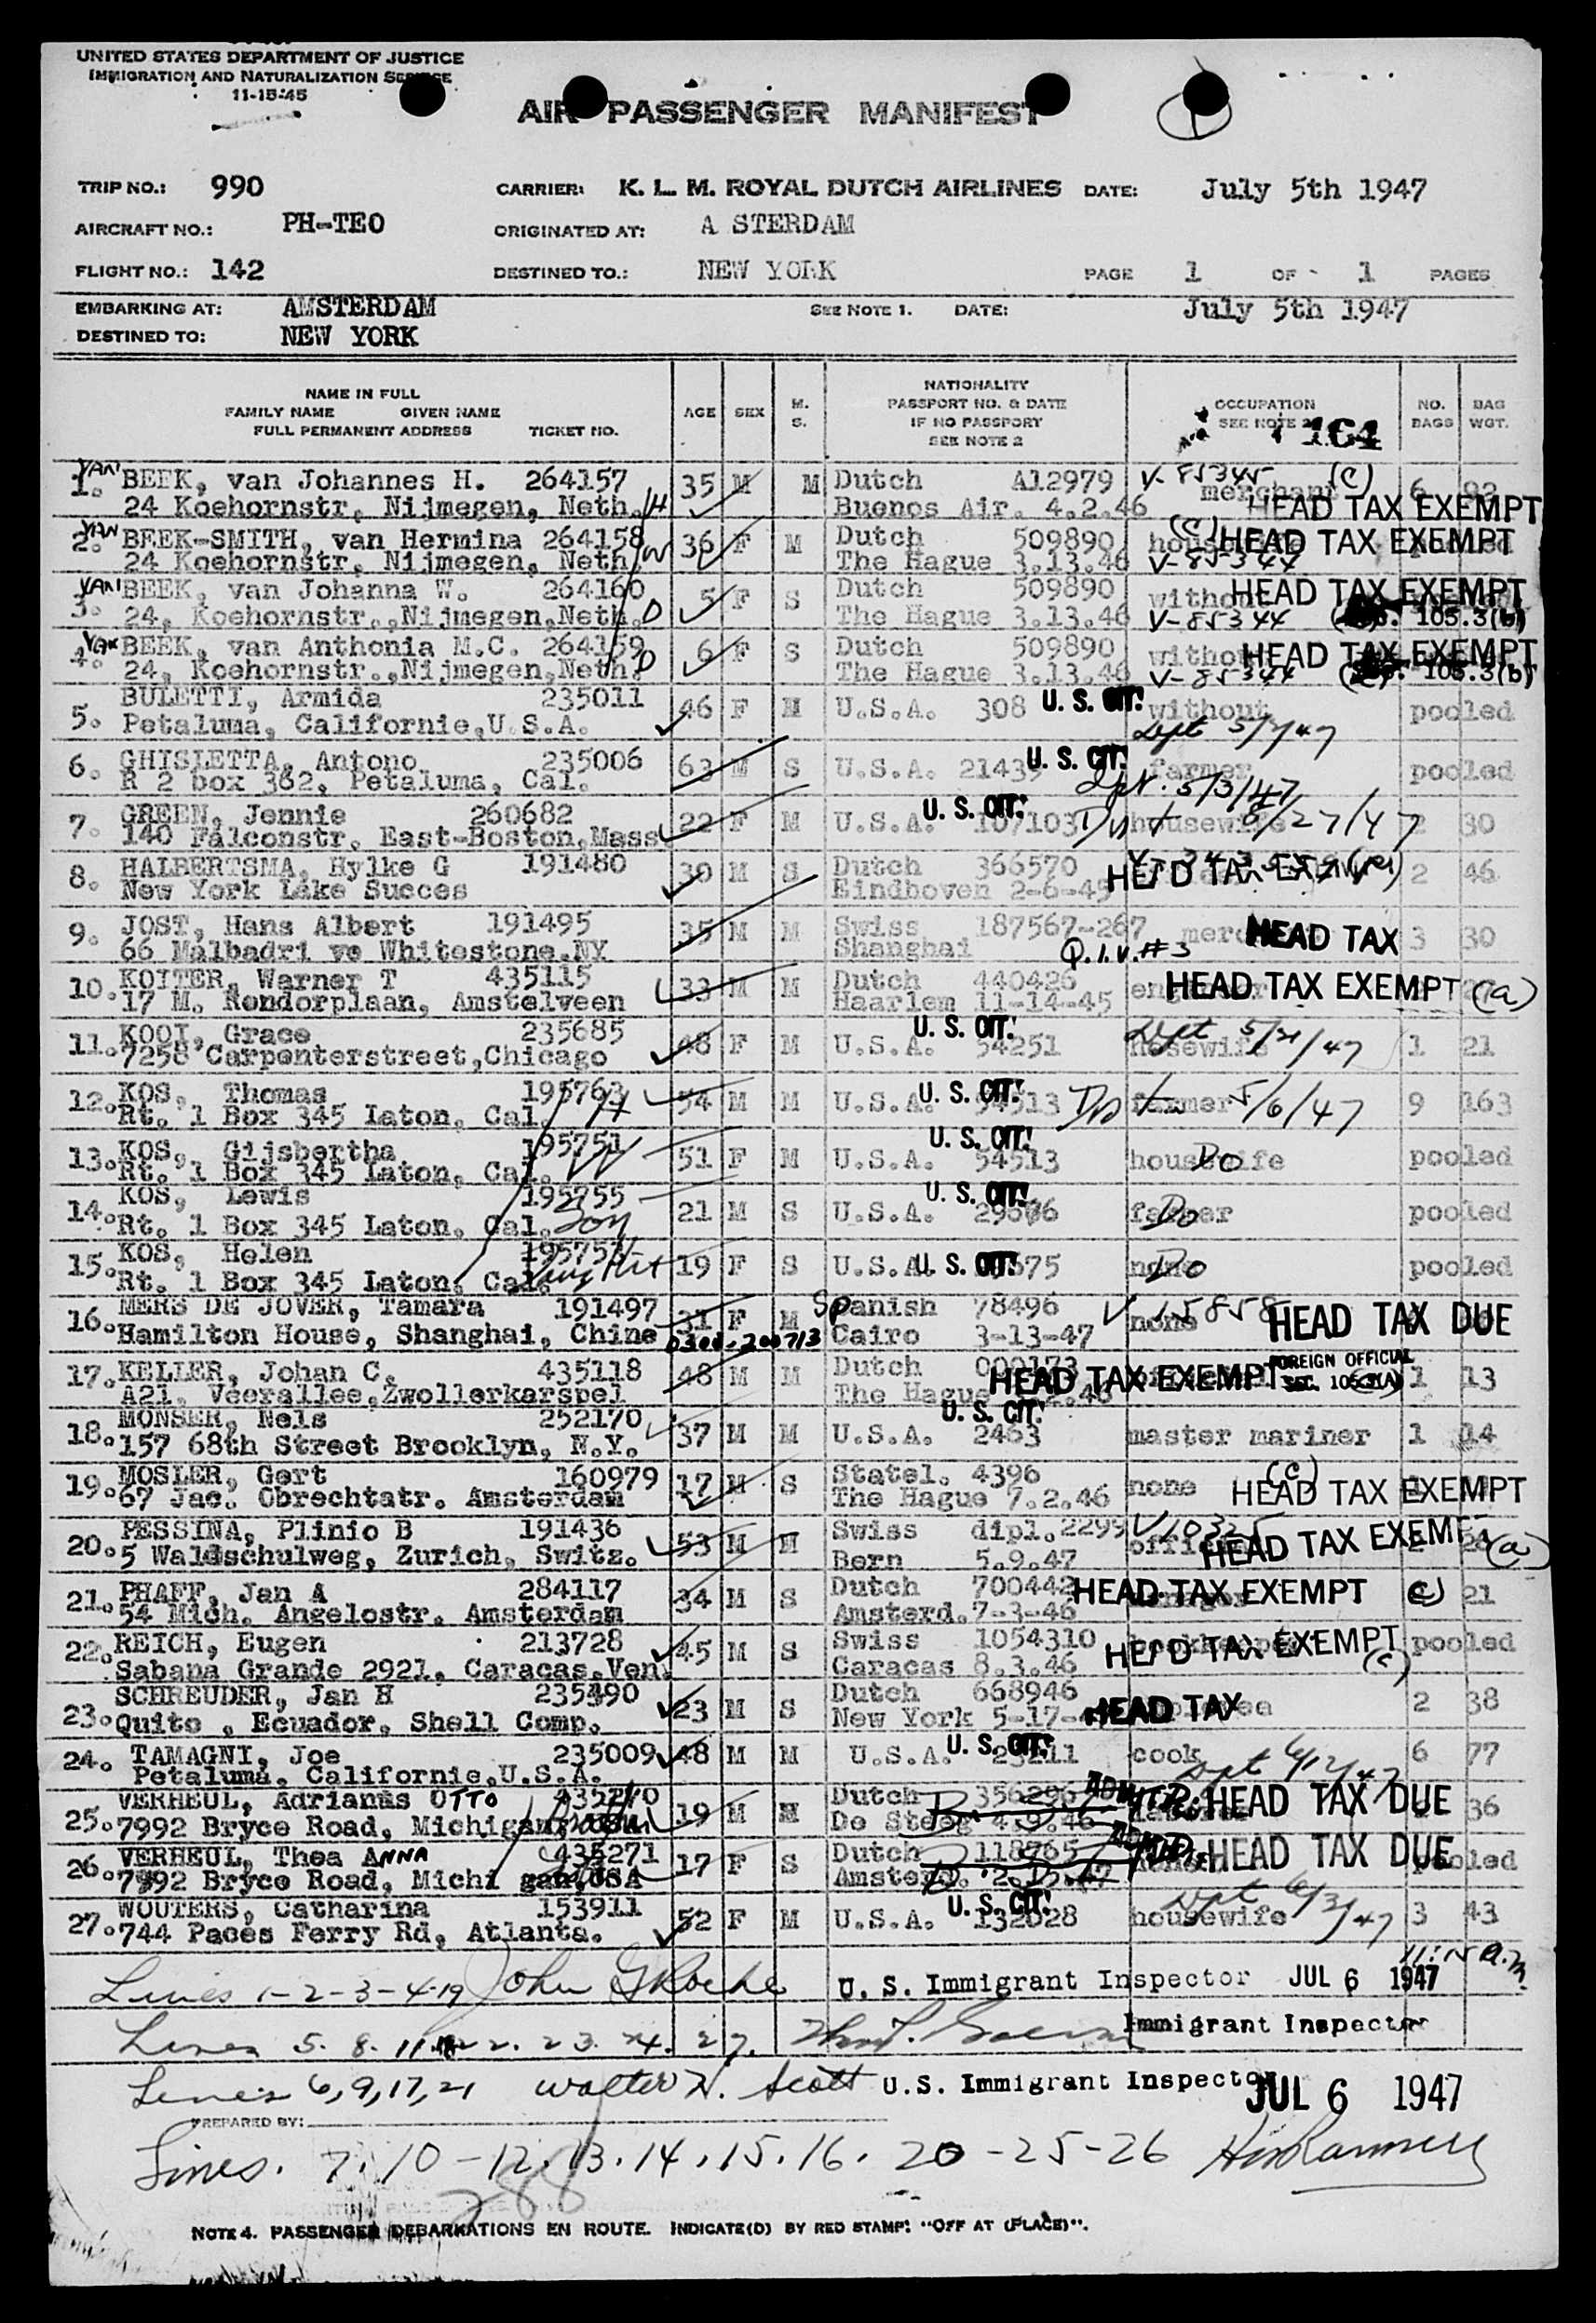 UNITED STATES DEPARTMENT OF JUSTICE
IMMIGRATION AND NATURALIZATION SERVICE
11-15-45
AIR PASSENGER MANIFEST
TRIP NO.: 990 CARRIER: K. L. M. ROYAL DUTCH AIRLINES DATE: July 5th 1947
AIRCRAFT NO.: PH-TEO ORIGINATED AT: A STERDAM
FLIGHT NO.: 142 DESTINED TO.: NEW YORK PAGE 1 OF 1 PAGES
EMBARKING AT: AMSTERDAM SEE NOTE 1. DATE: July 5th 1947
DESTINED TO: NEW YORK
NAME IN FULL
FAMILY NAME GIVEN NAME
FULL PERMANENT ADDRESS TICKET NO.
AGE SEX M. S.
NATIONALITY
PASSPORT NO. & DATE
IF NO PASSPORT
SEE NOTE 2
OCCUPATION
SEE NOTE
164
NO. BAGS BAG WGT.
VAN
1. BEEK, van Johannes H. 264157 35 M M Dutch A12979 V-85345 (C) merchant 6 92
24 Koehornstr, Nijmegen, Neth. H Buenos Air. 4.2.46 HEAD TAX EXEMPT
VAN
2. BEEK-SMITH, van Hermina 264158 36 F M Dutch 509890 (C) HEAD TAX EXEMPT
24 Koehornstr, Nijmegen, Neth. W The Hague 3.13.46 V-85344
VAN
3. BEEK, van Johanna W. 264160 5 F S Dutch 509890 without HEAD TAX EXEMPT
24, Koehornstr.,Nijmegen,Neth. D The Hague 3.13.46 V-85344 105.3(b)
VAN
4. BEEK, van Anthonia M.C. 264159 6 F S Dutch 509890 without HEAD TAX EXEMPT
24, Koehornstr.,Nijmegen,Neth. D The Hague 3.13.46 V-85344 105.3(b)
5. BULETTI, Armida 235011 46 F M U.S.A. 308 U. S. CIT. without pooled
Petaluma, Californie,U.S.A. Dept 5/7/47
6. GHISLETTA, Antono 235006 63 M S U.S.A. 21439 U. S. CIT. farmer pooled
R 2 box 362, Petaluma, Cal. Dpt. 5/3/47
7. GREEN, Jennie 260682 22 F M U.S.A. 107103 U. S. CIT. housewife 6/27/47 2 30
140 Falconstr. East-Boston,Mass
8. HALBERTSMA, Hylke G 191480 30 M S Dutch 366570 HEAD TAX EXEMPT 2 46
New York Lake Succes Eindhoven 2-6-45
9. JOST, Hans Albert 191495 35 M M Swiss 187567-267 HEAD TAX 3 30
66 Malbadri ve Whitestone.NY Shanghai Q.I.V.#3
10. KOITER, Warner T 435115 33 M M Dutch 440426 HEAD TAX EXEMPT (a)
17 M. Rendorplaan, Amstelveen Haarlem 11-14-45
11. KOOI, Grace 235685 48 F M U.S.A. 54251 U. S. CIT. hosewife Dept 5/21/47 1 21
7258 Carpenterstreet,Chicago
12. KOS, Thomas 195763 54 M M U.S.A. 54513 U. S. CIT. farmer 5/6/47 9 163
Rt. 1 Box 345 Laton, Cal. H
13. KOS, Gijsbertha 195751 51 F M U.S.A. 54513 U. S. CIT. housewife Do pooled
Rt. 1 Box 345 Laton, Cal. W
14. KOS, Lewis 195755 21 M S U.S.A. U. S. CIT. farmer Do pooled
Rt. 1 Box 345 Laton, Cal. Son
15. KOS, Helen 19 F S U.S.A. U. S. CIT. none Do pooled
Rt. 1 Box 345 Laton, Cal.
16. MERS DE JOVER, Tamara 191497 31 F M Spanish 78496 V 15858 none HEAD TAX DUE
Hamilton House, Shanghai, Chine 0300-200713 Cairo 3-13-47
17. KELLER, Johan C. 435118 48 M M Dutch HEAD TAX EXEMPT FOREIGN OFFICIAL 1 13
A21, Veerallee,Zwollerkarspel The Hague SEC. 105.3(A)
18. MONSER, Nels 252170 37 M M U.S.A. 2463 U. S. CIT. master mariner 1 14
157 68th Street Brooklyn, N.Y.
19. MOSLER, Gert 160979 17 M S Statel. 4396 none (c) HEAD TAX EXEMPT
67 Jac. Obrechtatr. Amsterdam The Hague 7.2.46
20. PESSINA, Plinio B 191436 53 M M Swiss dipl.2299 V10325 HEAD TAX EXEMPT (a)
5 Waldschulweg, Zurich, Switz. Bern 5.9.47
21. PHAFF, Jan A 284117 34 M S Dutch 700442 HEAD TAX EXEMPT (c) 21
54 Mich. Angelostr. Amsterdam Amsterd. 7-3-46
22. REICH, Eugen 213728 45 M S Swiss 1054310 HEAD TAX EXEMPT (c) pooled
Sabana Grande 2921, Caracas,Ven. Caracas 8.3.46
23. SCHREUDER, Jan H 235390 23 M S Dutch 668946 HEAD TAX 2 38
Quito , Ecuador, Shell Comp. New York 5-17-
24. TAMAGNI, Joe 235009 48 M M U.S.A. U. S. CIT. cook 6/12/47 6 77
Petaluma, Californie,U.S.A.
25. VERHEUL, Adrianus OTTO 435270 19 M M Dutch 356296 HEAD TAX DUE 36
7992 Bryce Road, Michigan De Steeg 4.9.46
26. VERHEUL, Thea ANNA 435271 17 F S Dutch 118765 HEAD TAX DUE pooled
7992 Bryce Road, Michi gan,USA Amsterd.
27. WOUTERS, Catharina 153911 52 F M U.S.A. 132028 U. S. CIT. housewife 3 43
744 Paces Ferry Rd, Atlanta.
11:15 a.m.
Lines 1-2-3-4-19 John G Roche U. S. Immigrant Inspector JUL 6 1947
Lines 5. 8. 11. 22. 23. 24. 27. Immigrant Inspector
Lines 6,9,17,21 Walter N. Scott U.S. Immigrant Inspector JUL 6 1947
PREPARED BY:
Lines. 7. 10-12.13.14.15.16. 20-25-26
288
NOTE 4. PASSENGER DEBARKATIONS EN ROUTE. INDICATE(D) BY RED STAMP: "OFF AT (PLACE)".